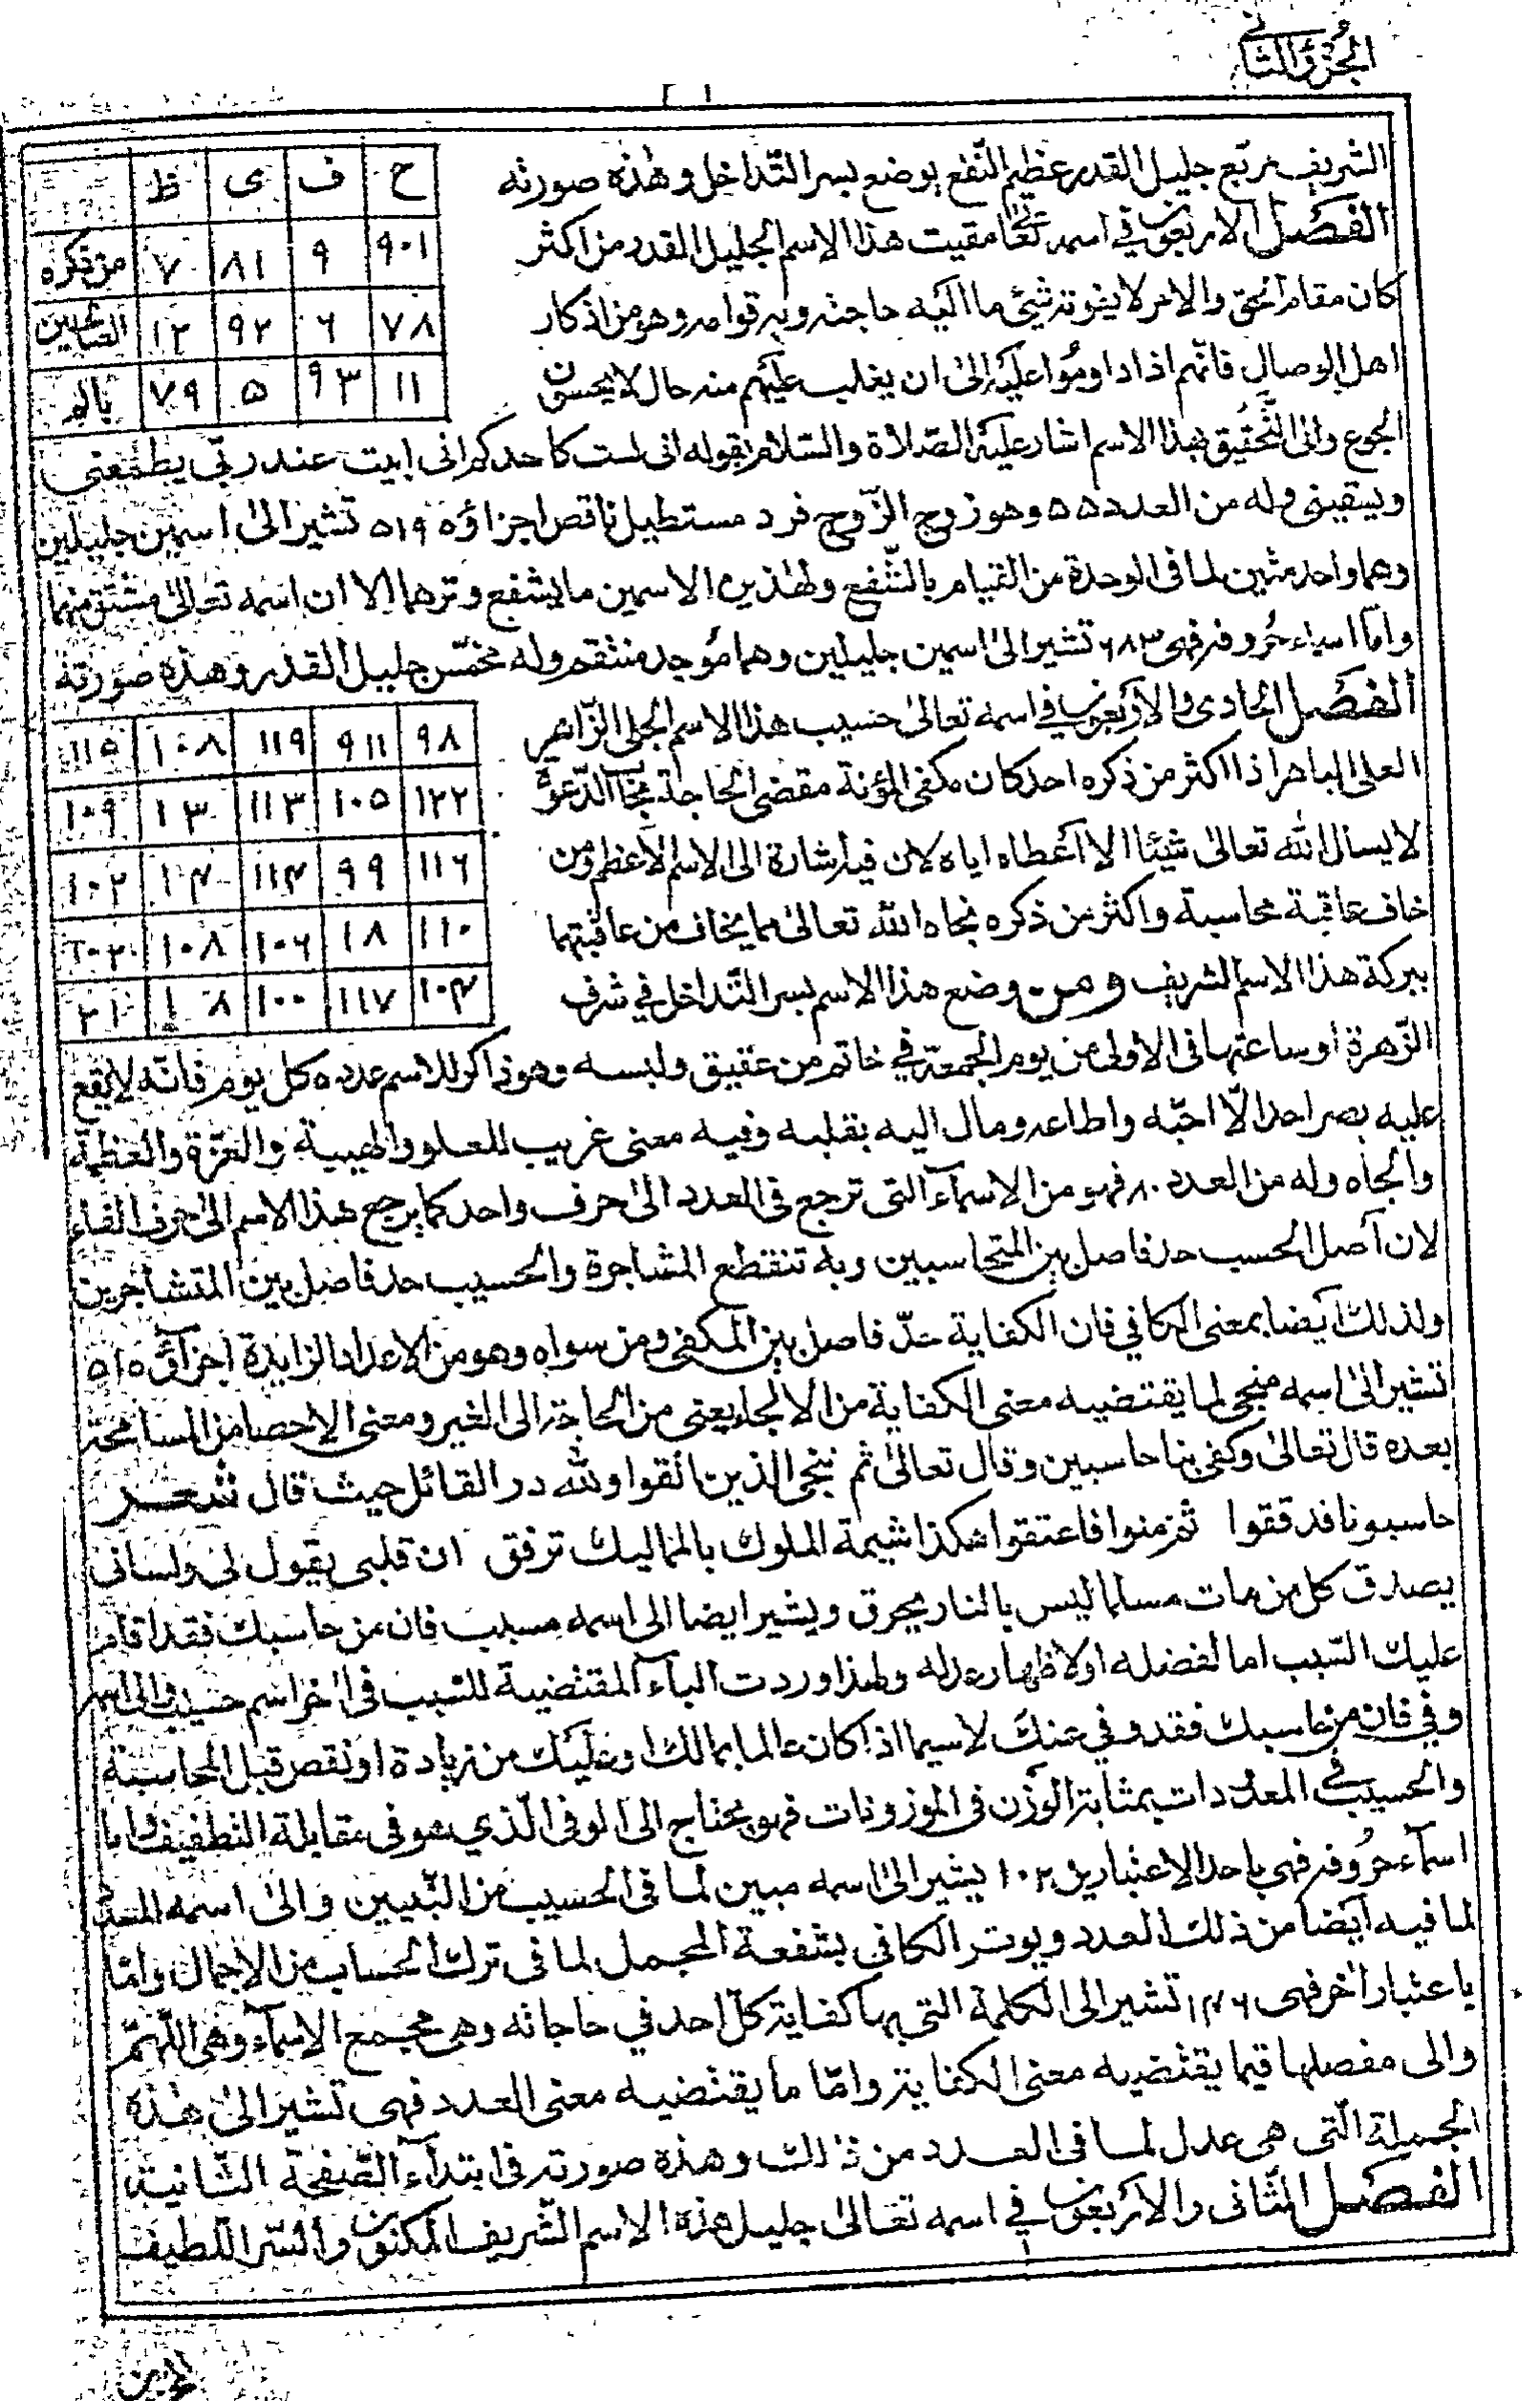 الجزء الثاني
الشريف مربع جليل القدر عظيم النفع يوضع بسر التداخل وهذه صورته
ح ف ى ظ
٩٠١ ٩ ٨١ ٧ من ذكره
٧٨ ٦ ٩٢ ١٢
١١ ٩٣ ٥ ٧٩
الفصل الاربعون في اسمه تعالى مقيت هذا الاسم الجليل القدر من اكثر
كان مقام الحق والامر لا يفوته شيئ ما اليه حاجته وبه قوامه وهو من اذكار
اهل الوصال فانهم اذا داوموا عليه الى ان يغلب عليهم منه حال لا يحسون
الجوع والى التحقيق بهذا الاسم اشار عليه الصلاة والسلام بقوله انى لست كاحدكم انى ابيت عند ربّي يطعمنى
ويسقينى وله من العدد ٥٥٠ وهو زوج الزّوج فرد مستطيل ناقص اجزاؤه ٥١٩ تشير الىٰ اسمين جليلين
وهما واحد متين لما فى الوحدة من القيام بالشّفع ولهٰذين الاسمين ما يشفع وترهما الا ان اسمه تعالى مشتق منهما
واما اسماء حُروفه فهى ٦٨٣ تشير الىٰ اسمين جليلين وهما مُوجد منتقم وله مخمّس جليل القدر وهذه صورته
٩٨ ٩١١ ١١٩ ١٠٨ ١١٥
١٢٢ ١٠٥ ١١٣ ١٣ ١٠٩
١١٦ ٩٩ ١١٤ ١٠٢
١١٠ ١٨ ١٠٦ ١٠٨
١٠٤ ١١٧ ١٠٠ ٨ ٢١
الفصل الحادى والاربعون في اسمه تعالىٰ حسيب هذا الاسم الجلى الزّاهر
العلى الباهر اذا اكثر من ذكره احد كان مكفى المؤنة مقضى الحاجة مجاب الدّعوة
لا يسال الله تعالىٰ شيئا الا اعطاه اياه لان فيه اشارة الى الاسم الاعظم ومن
خاف عاقبة محاسبة واكثر من ذكره نجاه الله تعالىٰ مما يخاف من عاقبتها
ببركة هذا الاسم الشريف ومن وضع هذا الاسم بسر التّداخل في شرف
الزّهرة او ساعتها فى الاولى من يوم الجمعة في خاتم من عقيق ولبسه وهو ذاكر للاسم عدده كل يوم فانّه لا يقع
عليه بصر احد الّا احبّه واطاعه ومال اليه بقلبه وفيه معنى غريب للعلو والهيبة والعزّة والعظمة
والجاه وله من العدد ٨٠ فهو من الاسمآء التى ترجع فى العدد الىٰ حرف واحد كما يرجع هذا الاسم الىٰ حرف الفاء
لان اصل الحسب حد فاصل بين المتحاسبين وبه تنقطع المشاجرة والحسيب حد فاصل بين المتشاجرين
ولذلك ايضا بمعنى الكافي فان الكفاية حدّ فاصل بين المكفى ومن سواه وهو من الاعداد الزايدة اجزآؤه ٥١٥
تشير الىٰ اسمه منجى لما يقتضيه معنى الكفاية من الانجاء يعنى من الحاجة الى الغير ومعنى الاحصا من المسامحة
بعده قال تعالىٰ وكفى بنا حاسبين وقال تعالىٰ ثم ننجى الذين اتقوا ولله در القائل حيث قال شعر
حاسبونا فدققوا ثم منوا فاعتقوا هكذا شيمة الملوك بالمماليك ترفق ان قلبى يقول لى ولسانى
يصدق كل من مات مسلما ليس بالنار يحرق ويشير ايضا الى اسمه مسبب فان من حاسبك فقد اقام
عليك السّبب اما لفضله او لاظهار عدله ولهذا وردت البآء المقتضية للسّبب فى اخر اسم حسيب والى اسمه
وفي فان من حاسبك فقد وفي عنك لاسيما اذا كان عالما بمالك او عليك من زيادة او نقص قبل المحاسبة
والحسيب في المعدّدات بمثابة الوزن فى الموزونات فهو يحتاج الى الوفى الّذي هو فى مقابلة التطفيف واما
اسمآء حرُوفه فهي باحد الاعتبارين ١٠٢ يشير الىٰ اسمه مبين لما فى الحسيب من التّبيين والىٰ اسمه
لما فيه ايضا من ذلك العدد ويوتر الكافى بشفعة المجمل لما فى ترك الحساب من الاجمال واما
باعتبار اخر فهى ١٤٦ تشير الى الكلمة التى بها كفاية كل احد في حاجاته وهى مجمع الاسمآء وهى اللّهم
والى مفصلها فيما يقتضيه معنى الكفاية وامّا ما يقتضيه معنى العدد فهى تشير الىٰ هٰذه
الجملة الّتى هى عدل لما فى العدد من ذٰلك وهذه صورته فى ابتدآء الصّفحة الثّانية
الفصل الثّانى والاربعون في اسمه تعالىٰ جليل هذه الاسم الشّريف المكنون والسّر اللّطيف